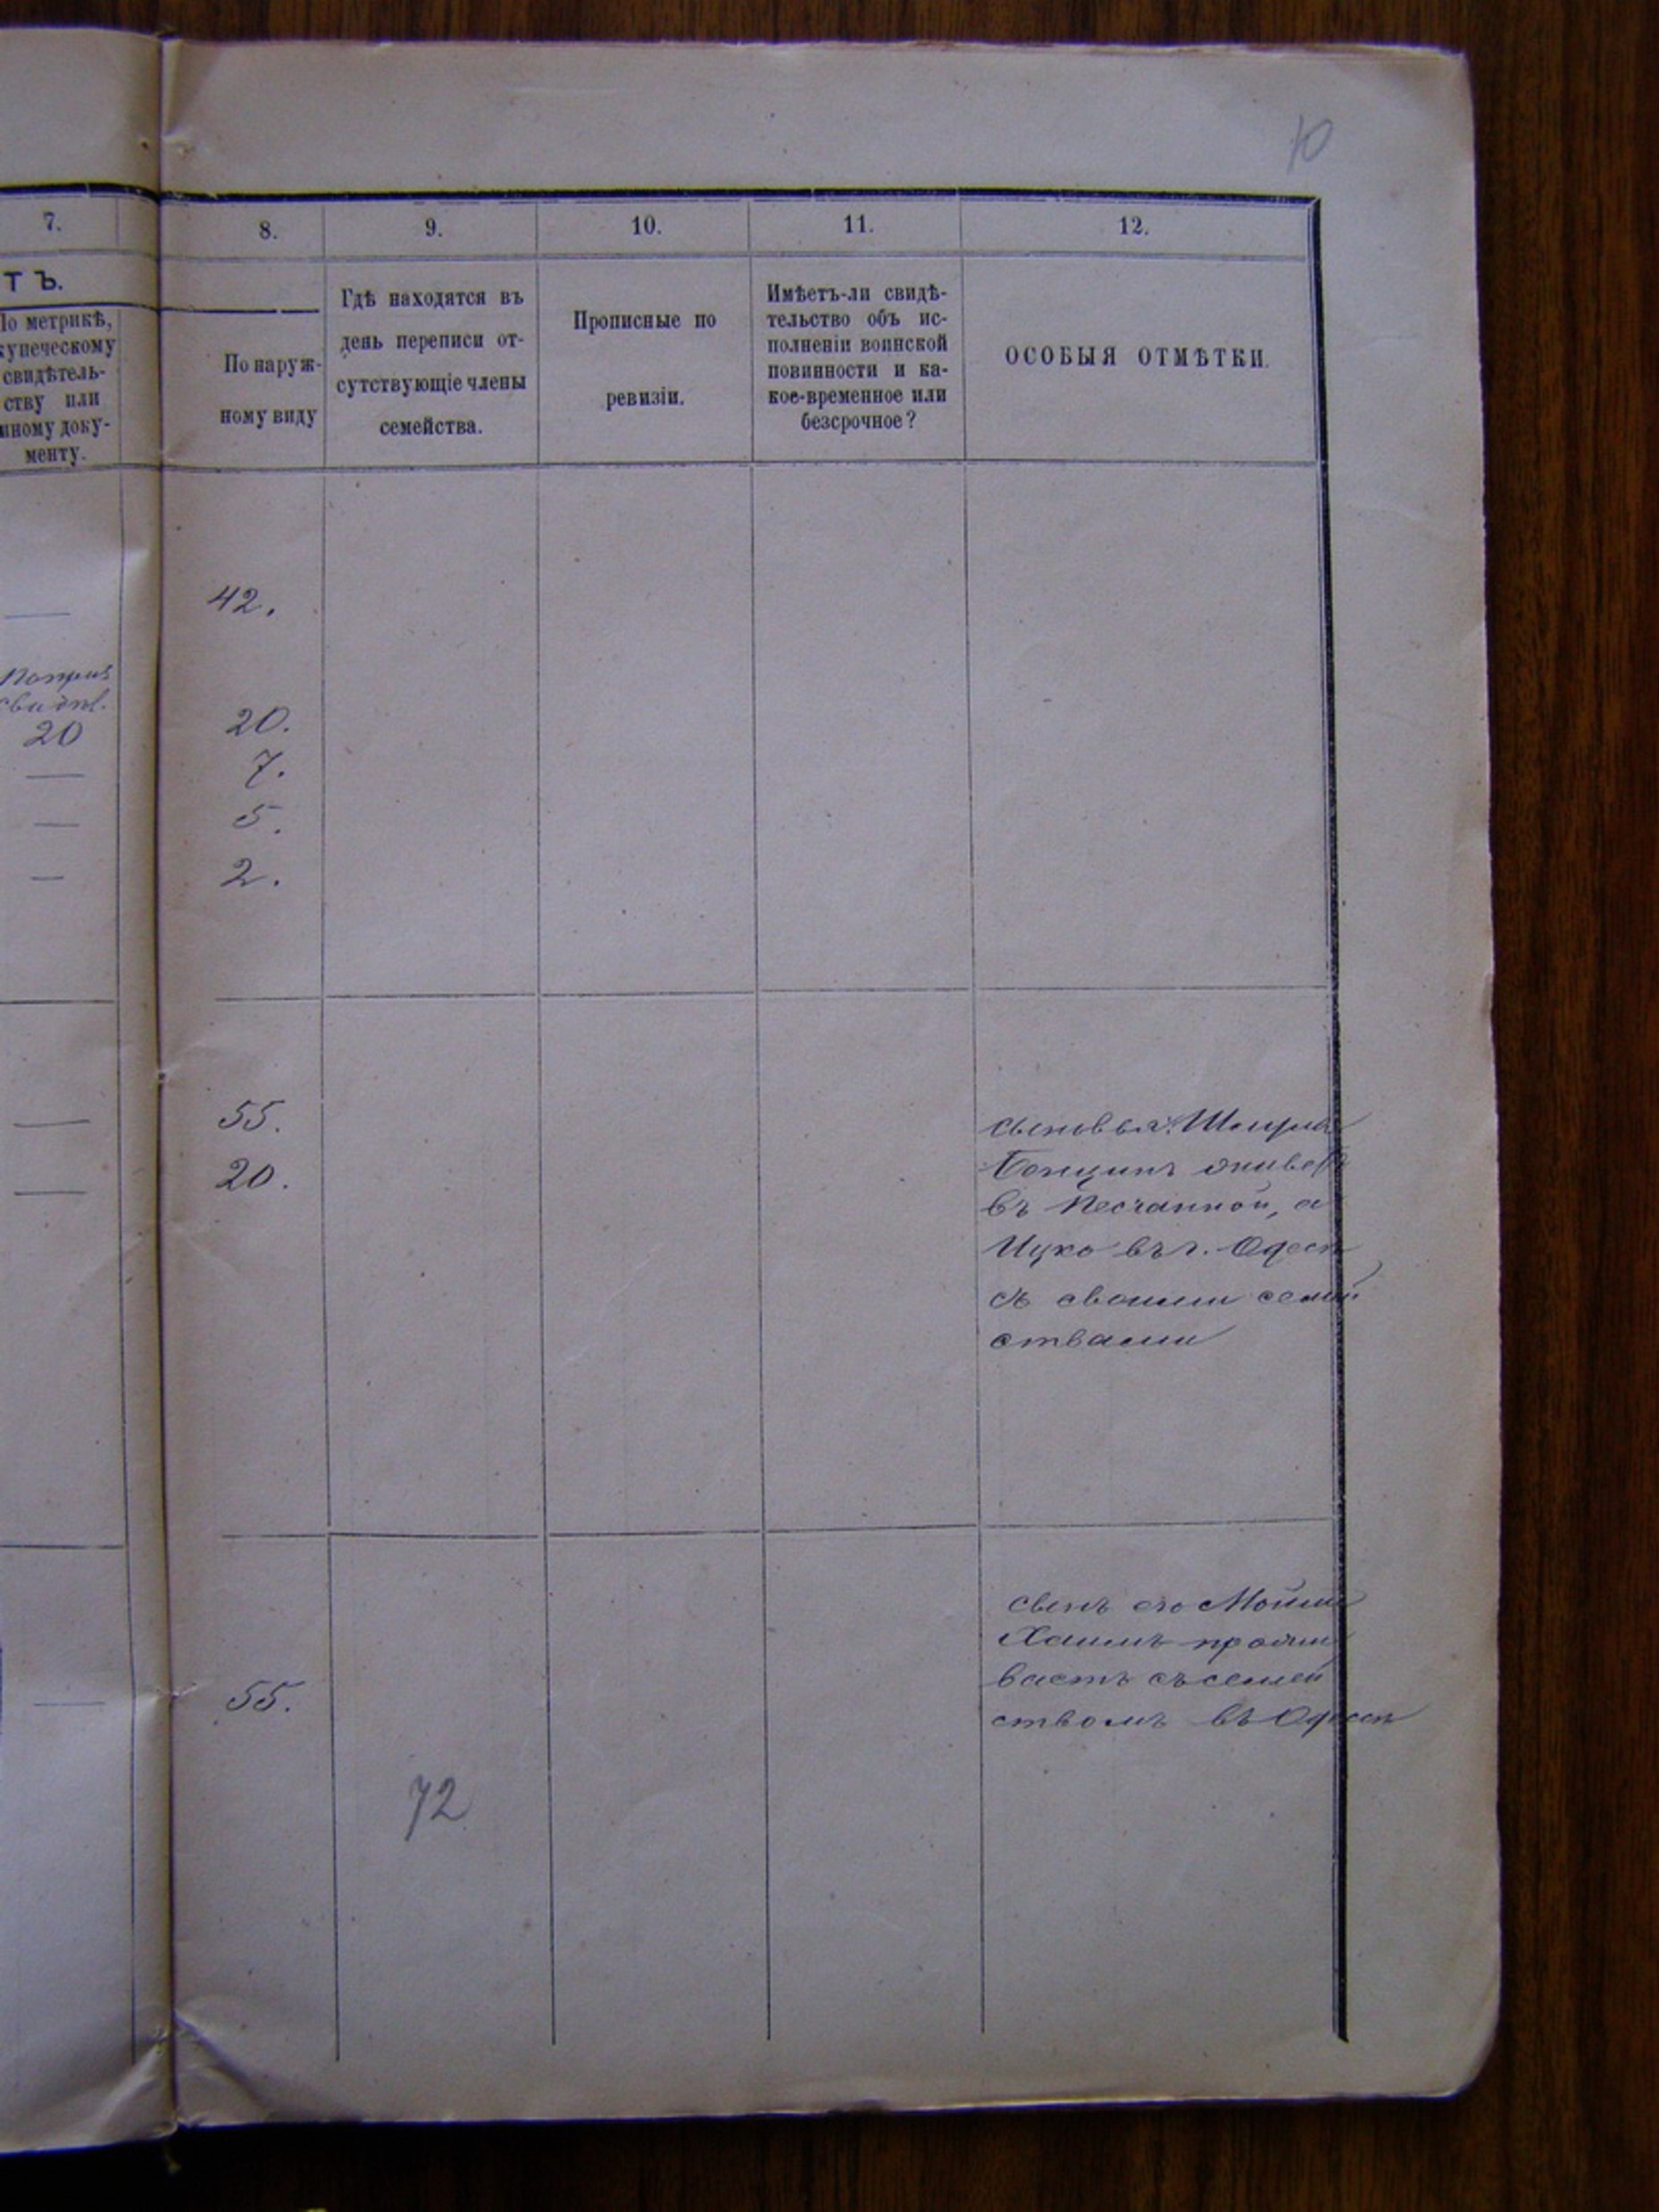 10
7.
8.
9.
10.
11.
12.
ТЪ.
По метрикѣ,
купеческому
свидѣтель-
ству или
иному доку-
менту.
По наруж-
ному виду
Гдѣ находятся въ
день переписи от-
сутствующіе члены
семейства.
Прописные по
ревизіи.
Имѣетъ-ли свидѣ-
тельство объ ис-
полненіи воинской
повинности и ка-
кое-временное или
безсрочное?
ОСОБЫЯ ОТМѢТКИ.
42.
20
20.
7.
5.
2.
55.
20.
сыновья:
въ Песчанной, а
Ицко въ г. Одесѣ
съ своими семей
ствами
сынъ его Мойше
Хаимъ прожи
ваетъ съ семей
ствомъ въ Одессѣ
55.
72